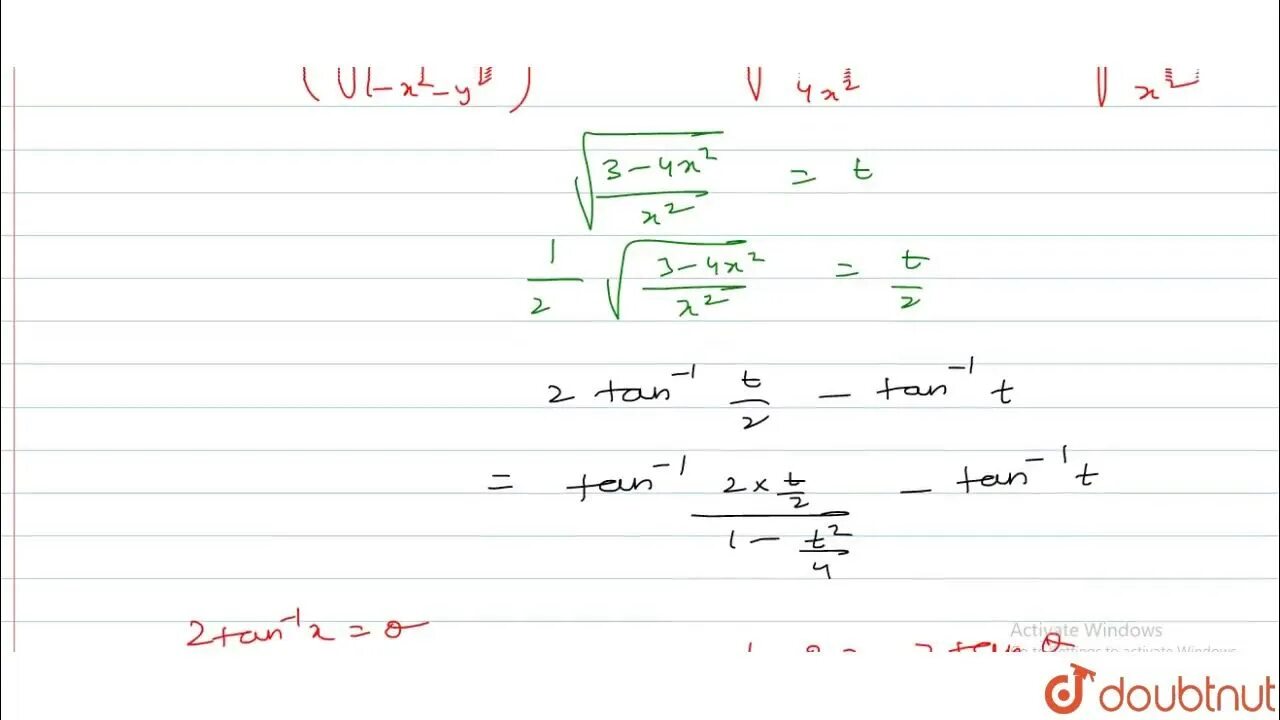 (√1-x²-y²) √ 4x² √ x²
√(3-4x²/x²) = t
1/2 √(3-4x²/x²) = t/2
2 tan⁻¹ t/2 - tan⁻¹ t
= tan⁻¹ (2×t/2)/(1-t²/4) - tan⁻¹ t
2tan⁻¹x = θ
Activate Windows
Go to Settings to activate Windows.
doubtnut